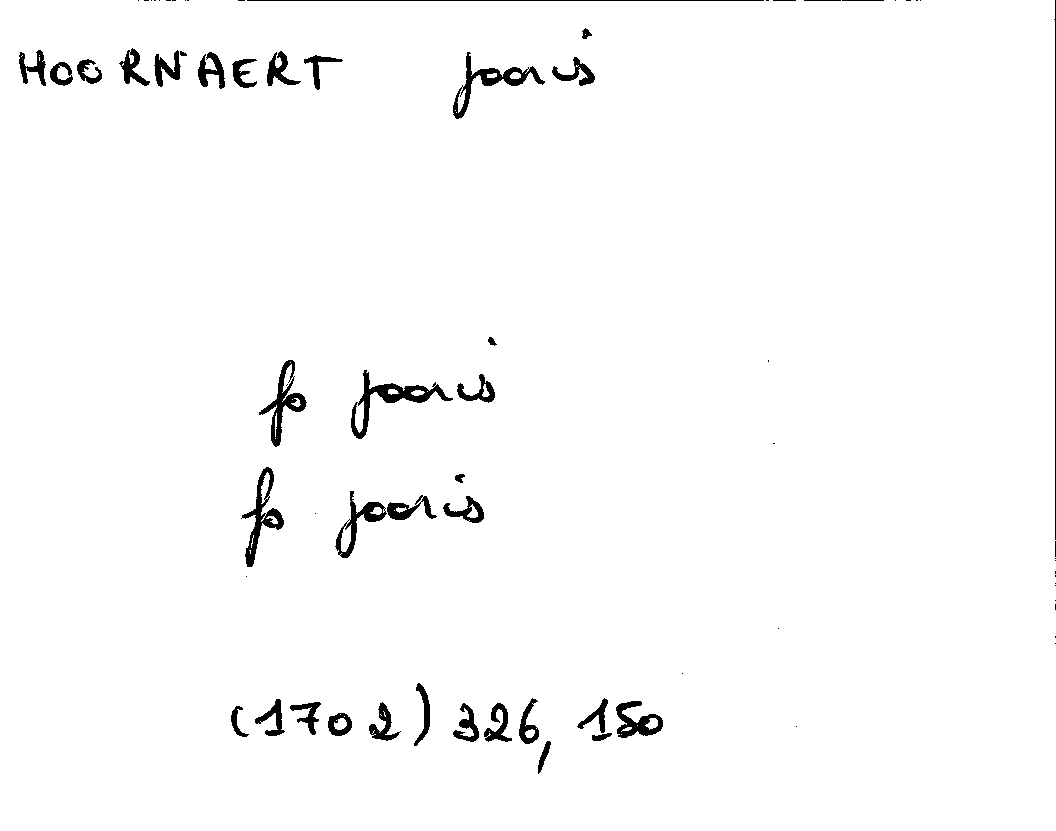 HOORNAERT Jooris
fs Jooris
fs Jooris
(1702) 326, 150